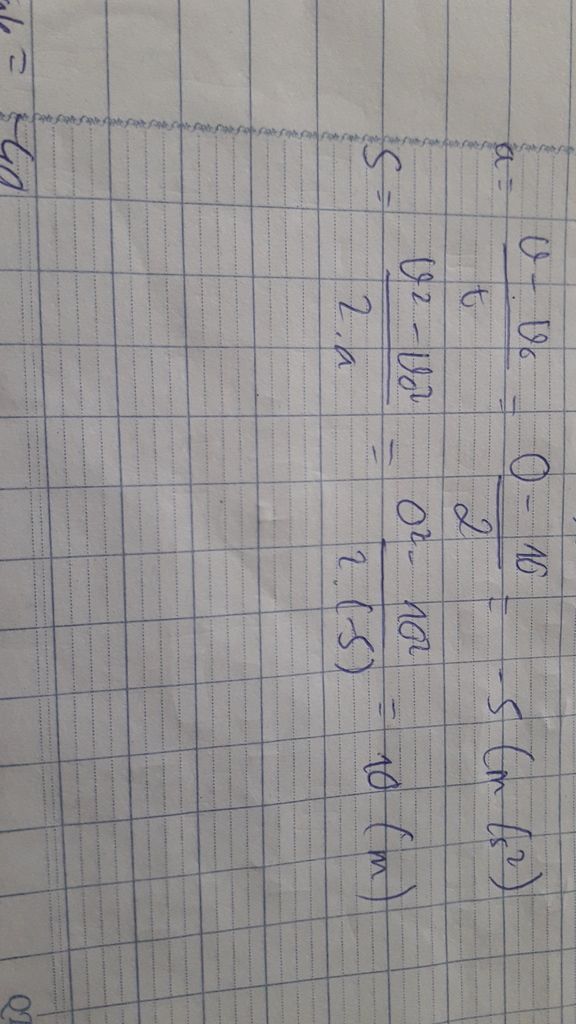 a = \frac{v - v_0}{t} = \frac{0 - 10}{2} = -5 (m/s^2)
S = \frac{v^2 - v_0^2}{2.a} = \frac{0^2 - 10^2}{2.(-5)} = 10 (m)
= -40